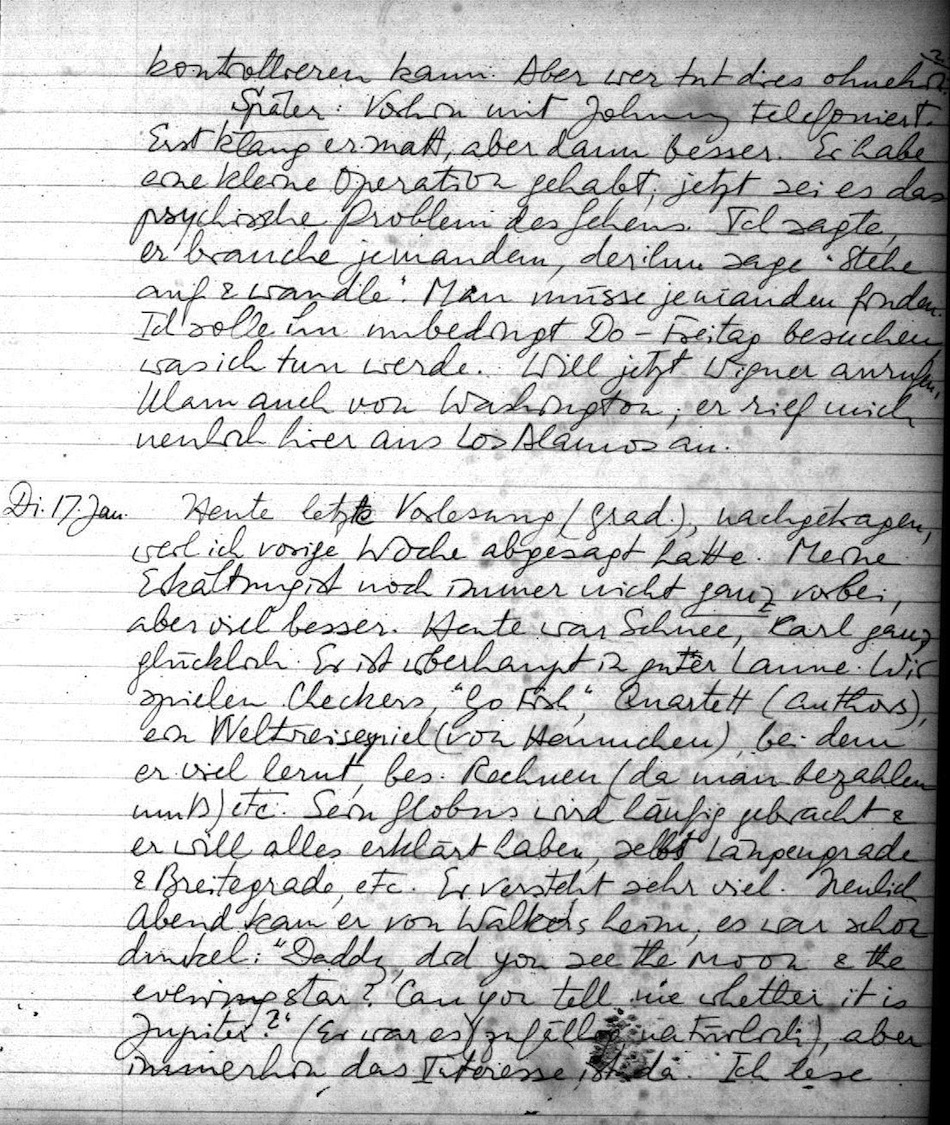 kontrollieren kann. Aber wer tut dies ohnehin?
Später: Vorhin mit Johnny telefoniert.
Erst klang er matt, aber dann besser. Er habe
eine kleine Operation gehabt, jetzt sei es das
psychische Problem des Gehens. Ich sagte,
er brauche jemandem, der ihm sage "Stehe
auf & wandle". Man müsse jemanden finden.
Ich solle ihn unbedingt Do – Freitag besuchen,
was ich tun werde. Will jetzt Wigner anrufen,
Ulam auch von Washington; er rief mich
neulich hier aus Los Alamos an.
Di. 17. Jan. Heute letzte Vorlesung (grad.), nachgetragen,
weil ich vorige Woche abgesagt hatte. Meine
Erkältung ist noch immer nicht ganz vorbei,
aber viel besser. Heute war Schnee, Karl ganz
glücklich. Er ist überhaupt in guter Laune. Wir
spielen Checkers, "Go Fish", Quartett (Authors),
ein Weltreisespiel (von Hannchen), bei dem
er viel lernt, bes. Rechnen (da man bezahlen
muß) etc. Sein Globus wird häufig gebracht &
er will alles erklärt haben, selbst Längengrade
& Breitegrade, etc. Er versteht sehr viel. Neulich
Abend kam er von Walkers heim, es war schon
dunkel: "Daddy, did you see the Moon & the
evening star? Can you tell me whether it is
Jupiter?" (Er war es) (zufällig natürlich), aber
immerhin das Interesse ist da. Ich lese